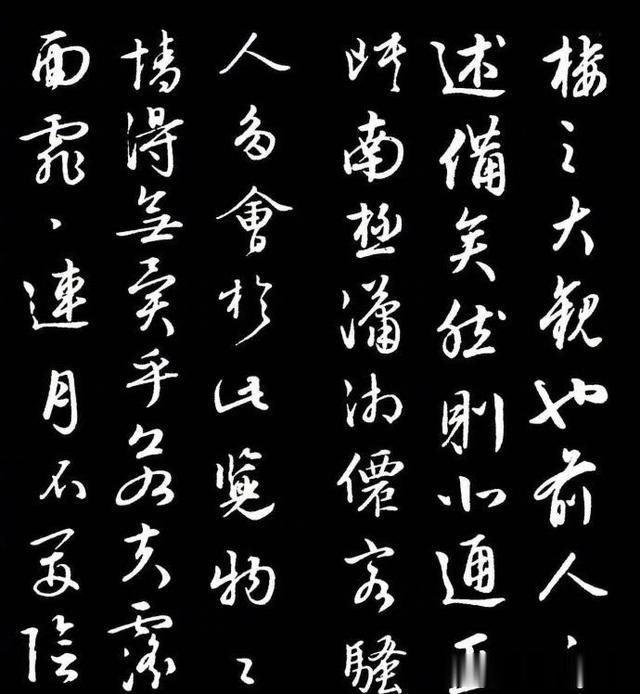 樓之大觀也前人之
述備矣然則北通巫
峽南極瀟湘僊客騷
人多會於此覽物之
情得無異乎若夫霪
雨霏〻連月不開陰